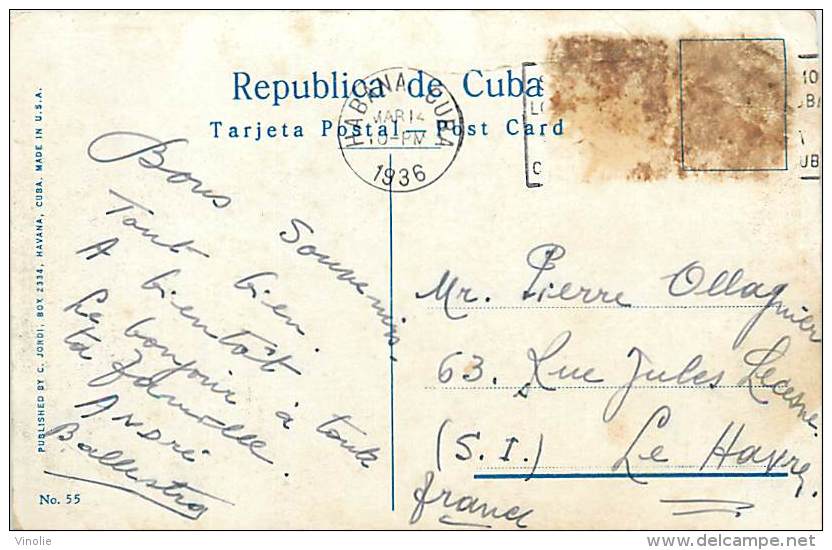 Republica de Cuba
Tarjeta Postal — Post Card
HABANA, CUBA
MAR 14
10-PM
1936
PUBLISHED BY C. JORDI, BOX 2334, HAVANA, CUBA. MADE IN U.S.A.
Bons Souvenirs.
Tout bien.
A bientôt
Le bonjour à toute
ta famille.
ANDRÉ
Ballestra
Mr. Pierre Ollagnier
63. Rue Jules Lecesne.
(S. I.) Le Havre.
France
No. 55
Vinolie
delcampe.net